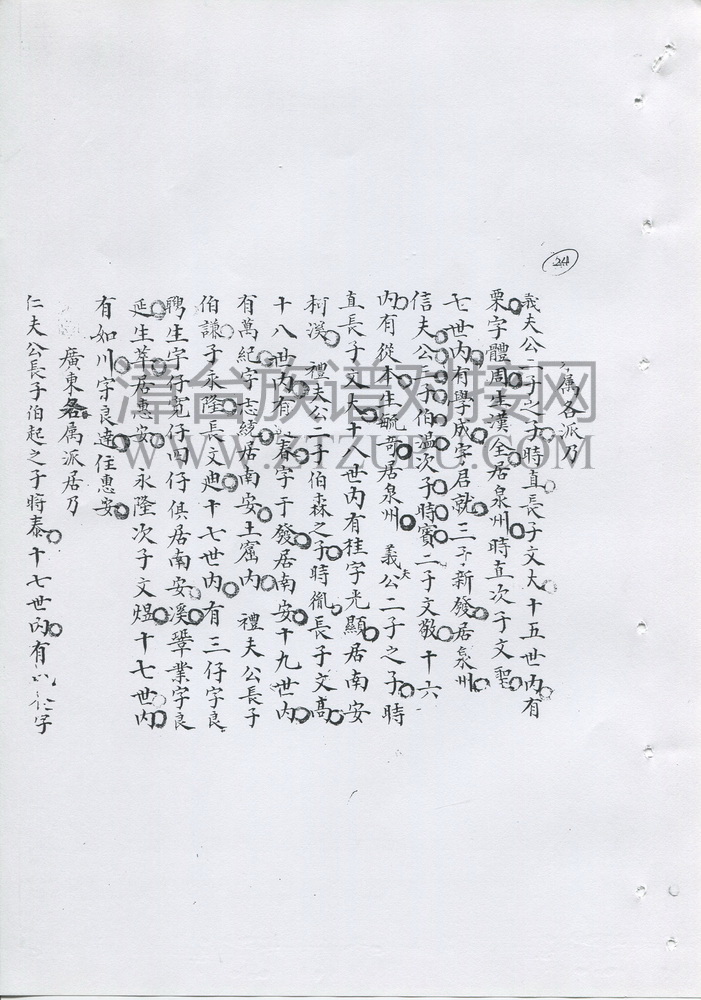 24
属各派乃
義夫公二子之子時直長子文大十五世内有
栗字體周生漢全居泉州時直次子文聖
七世内有學成字君就三子新發居泉州
信夫公三子伯温次子時寶二子文敬十六
内有從本生毓奇居泉州 義夫公二子之子時
直長子文大十八世内有桂字光顯居南安
柯溪 禮夫公二子伯森之子時胤長子文高
十八世内有 春字于發居南安十九世内
有萬紀字志綾居南安土窟内 禮夫公長子
伯謙子永隆長文迪十七世内有三仔字良
聘生字仔寛仔四仔俱居南安溪鞏業字良
延生莘居惠安 永隆次子文煜十七世内
有如川字良達住惠安
廣東各属派居乃
仁夫公長子伯起之子時泰十七世内有 字
漳台族谱对接网
WWW.ZTZUPU.COM